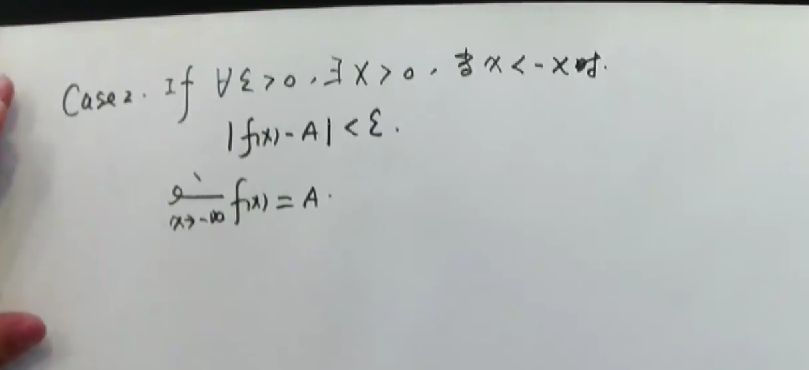 Case 2. If ∀ε>0, ∃X>0, 当x<-X时.
|f(x)-A|<ε.
lim f(x)=A.
x→-∞